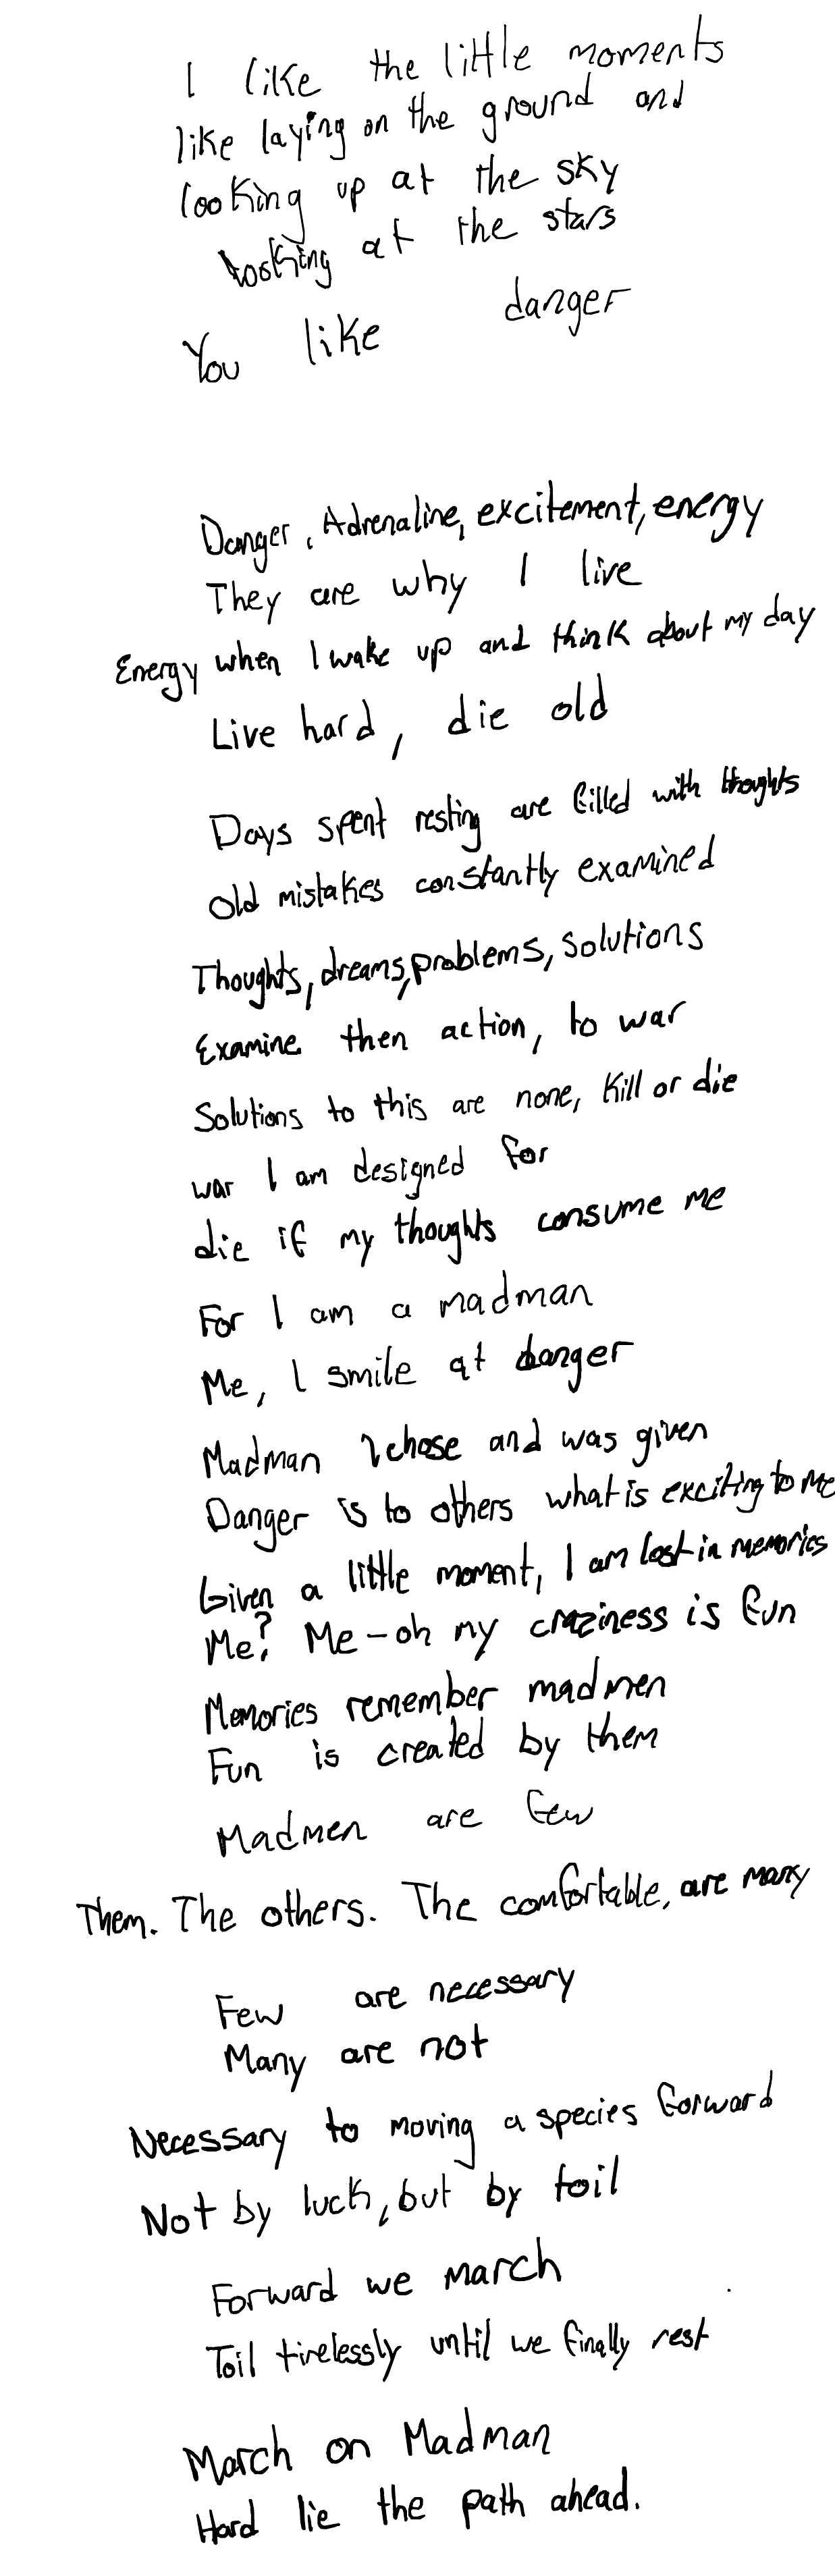 I like the little moments
like laying on the ground and
looking up at the sky
looking at the stars
You like danger
Danger, Adrenaline, excitement, energy
They are why I live
Energy when I wake up and think about my day
Live hard, die old
Days spent resting are filled with thoughts
Old mistakes constantly examined
Thoughts, dreams, problems, solutions
Examine then action, to war
Solutions to this are none, Kill or die
war I am designed for
die if my thoughts consume me
For I am a madman
Me, I smile at danger
Madman I chose and was given
Danger is to others what is exciting to me
Given a little moment, I am lost in memories
Me? Me - oh my craziness is fun
Memories remember madmen
Fun is created by them
Madmen are few
Them. The others. The comfortable, are many
Few are necessary
Many are not
Necessary to moving a species forward
Not by luck, but by toil
Forward we march
Toil tirelessly until we finally rest
March on Madman
Hard lie the path ahead.